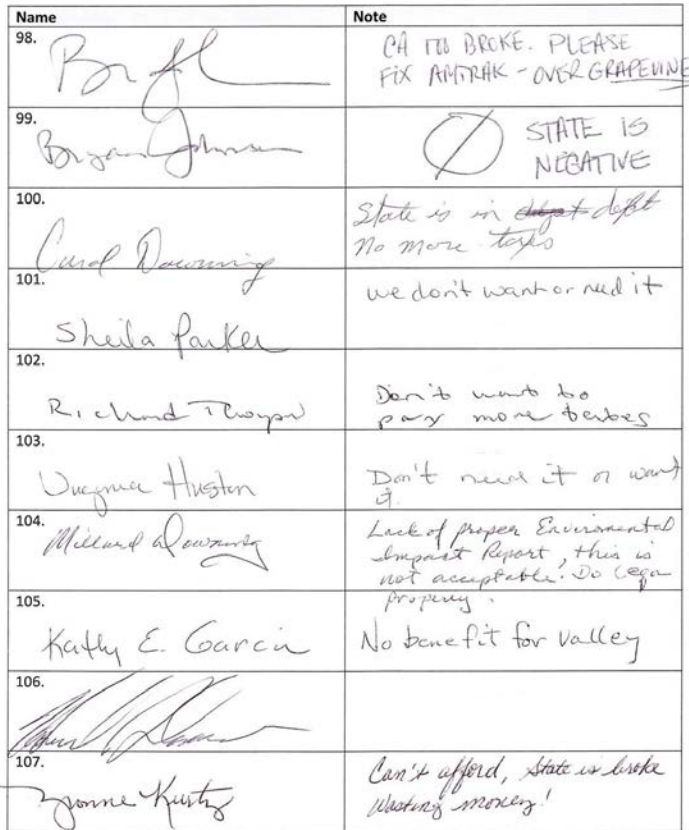 Name Note
98.
CA TOO BROKE. PLEASE
FIX AMTRAK - OVER GRAPEVINE
99.
Bryan Johnson
STATE IS
NEGATIVE
100.
Carol Downing
State is in debt
No more taxes
101.
Sheila Parker
we don't want or need it
102.
Richard
Don't want to
pay more taxes
103.
Virginia Huston
Don't need it or want
it.
104.
Millard Downing
Lack of proper Enviromental
Impact Report, this is
not acceptable. Do
property.
105.
Kathy E. Garcia
No benefit for valley
106.
107.
Yvonne Kurtz
Can't afford, State is broke
Wasting money!